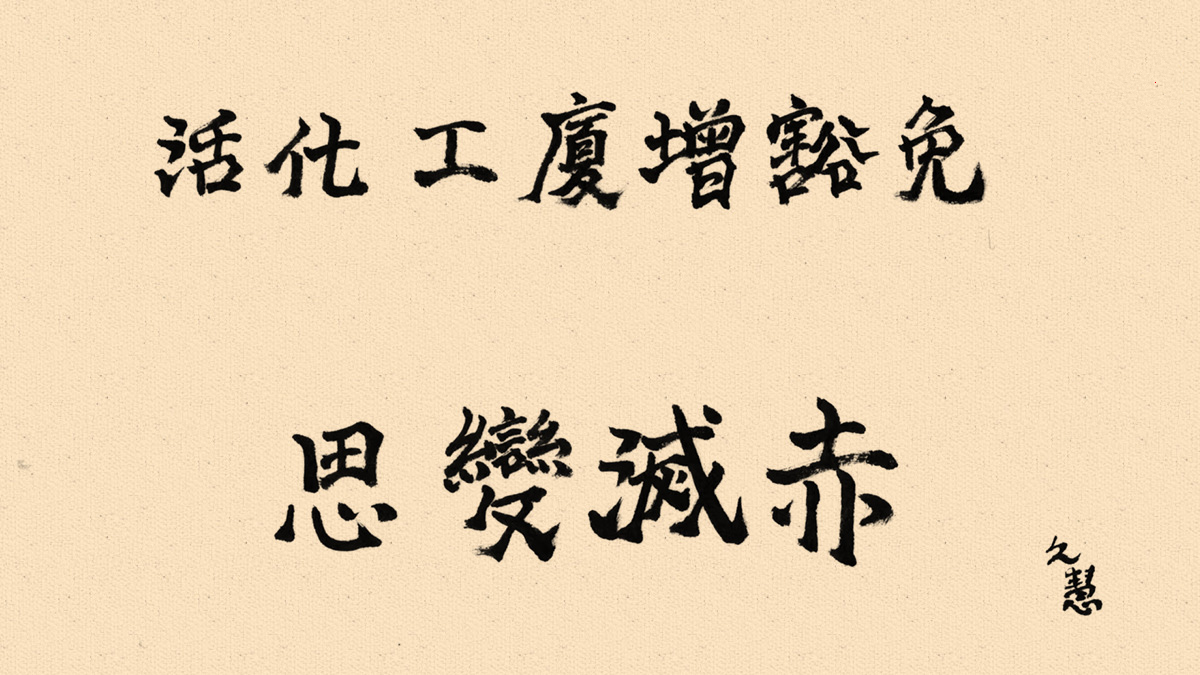 活化工廈增豁免
思變滅赤
久慧